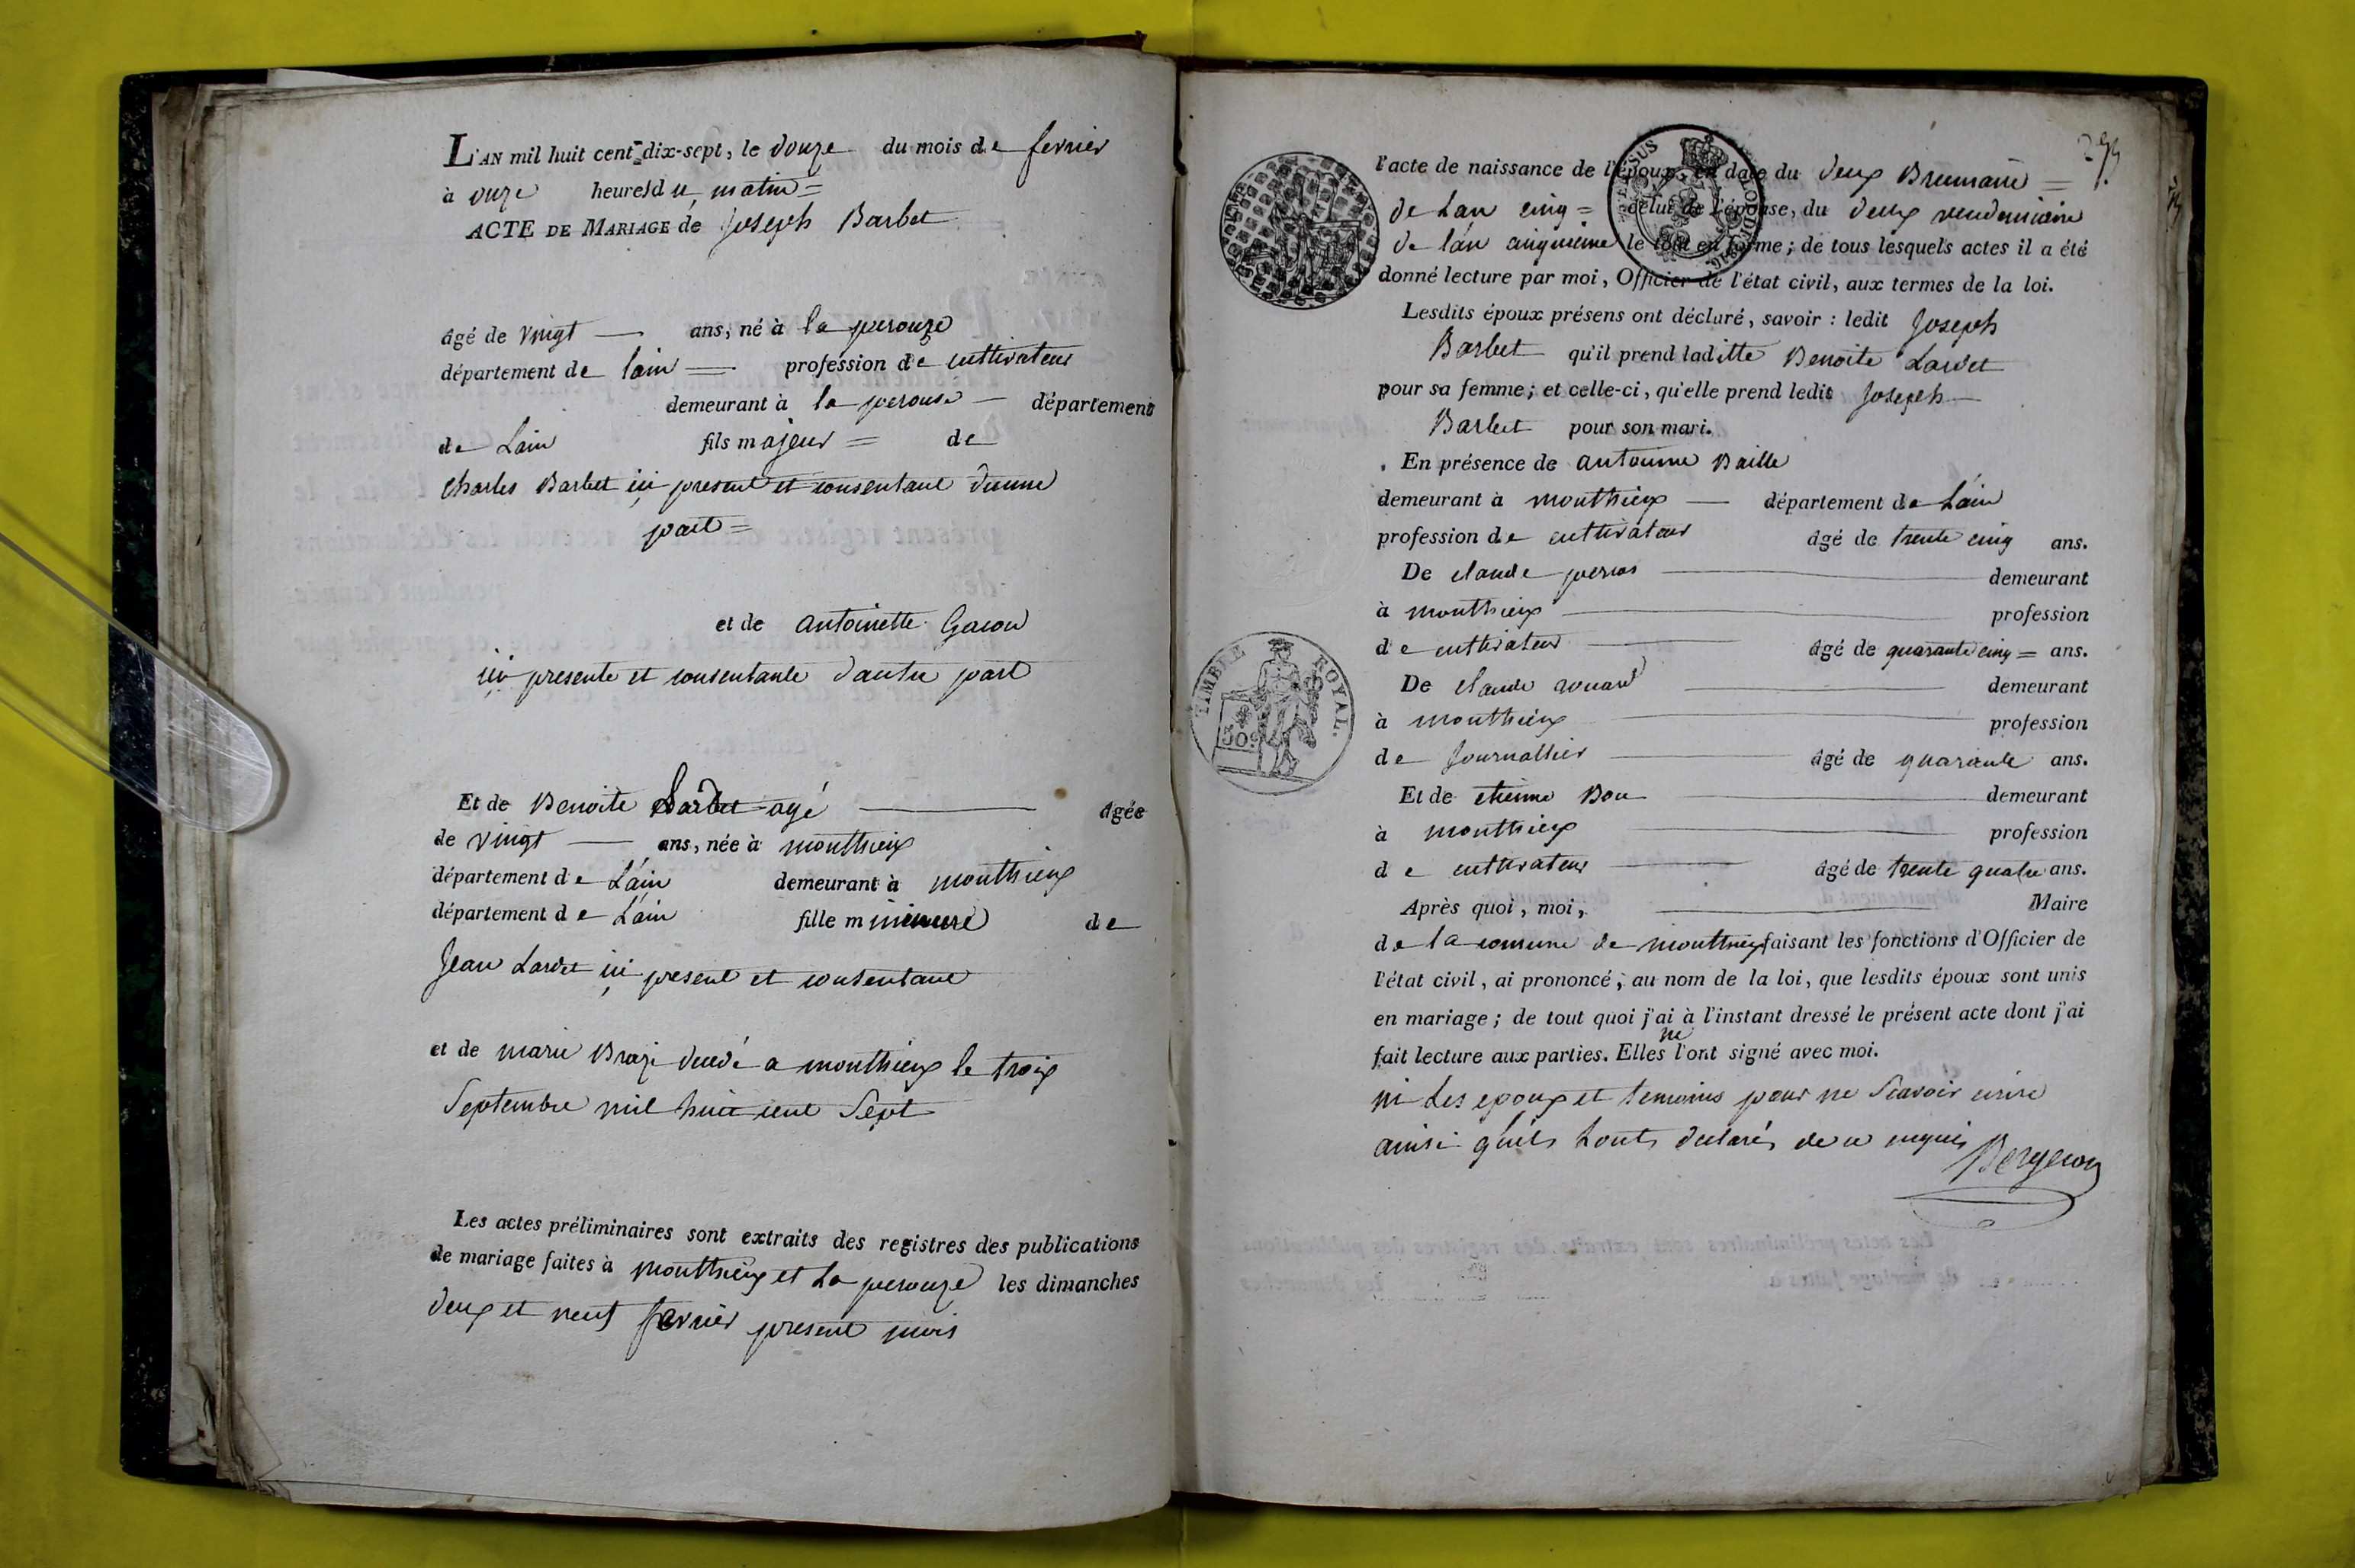 L'AN mil huit cent dix-sept, le douze du mois de fevrier
à onze heures du matin =
ACTE DE MARIAGE de Joseph Barbet
âgé de vingt — ans, né à la perouze
département de lain = profession de cultivateur
demeurant à la perouse — département
de Lain fils majeur = de
Charles Barbet ici present et consentant dunne
part =
et de antoinette Gacon
ici presente et consentante dautre part
Et de Benoite Lardet agé — âgée
de vingt — ans, née à monthieux
département de L'ain demeurant à monthieux
département de L'ain fille mineure de
Jean Lardet ici present et consentant
et de marie decedé a monthieux le trois
Septembre mil huit cent Sept
Les actes préliminaires sont extraits des registres des publications
de mariage faites à monthieux et La perouze les dimanches
deux et neuf fevrier present mois
l'acte de naissance de l'époux, en date du deux Brumaire =
de Lan cinq = celui de l'épouse, du deux vendemiaire
de l'an cinquieme le tout en forme; de tous lesquels actes il a été
donné lecture par moi, Officier de l'état civil, aux termes de la loi.
Lesdits époux présens ont déclaré, savoir : ledit Joseph
Barbet qu'il prend laditte Benoite Lardet
pour sa femme; et celle-ci, qu'elle prend ledit Joseph —
Barbet pour son mari.
En présence de antoinne Baille
demeurant à monthieux — département de L'ain
profession de cultivateur âgé de trente cinq ans.
De claude — demeurant
à monthieux — profession
de cultivateur — âgé de quarante cinq = ans.
De claude — demeurant
à monthieux — profession
de Journallier — âgé de quarante ans.
Et de etienne Bon — demeurant
à monthieux — profession
de cultivateur — âgé de trente quatre ans.
Après quoi, moi, — Maire
de la comune de monthieux faisant les fonctions d'Officier de
l'état civil, ai prononcé, au nom de la loi, que lesdits époux sont unis
en mariage; de tout quoi j'ai à l'instant dressé le présent acte dont j'ai
ne
fait lecture aux parties. Elles l'ont signé avec moi.
ni Les epoux et temoins pour ne Scavoir ecrire
ainsi quils Lonts declarés de ce enquis
Bergeron
TIMBRE ROYAL.
50c